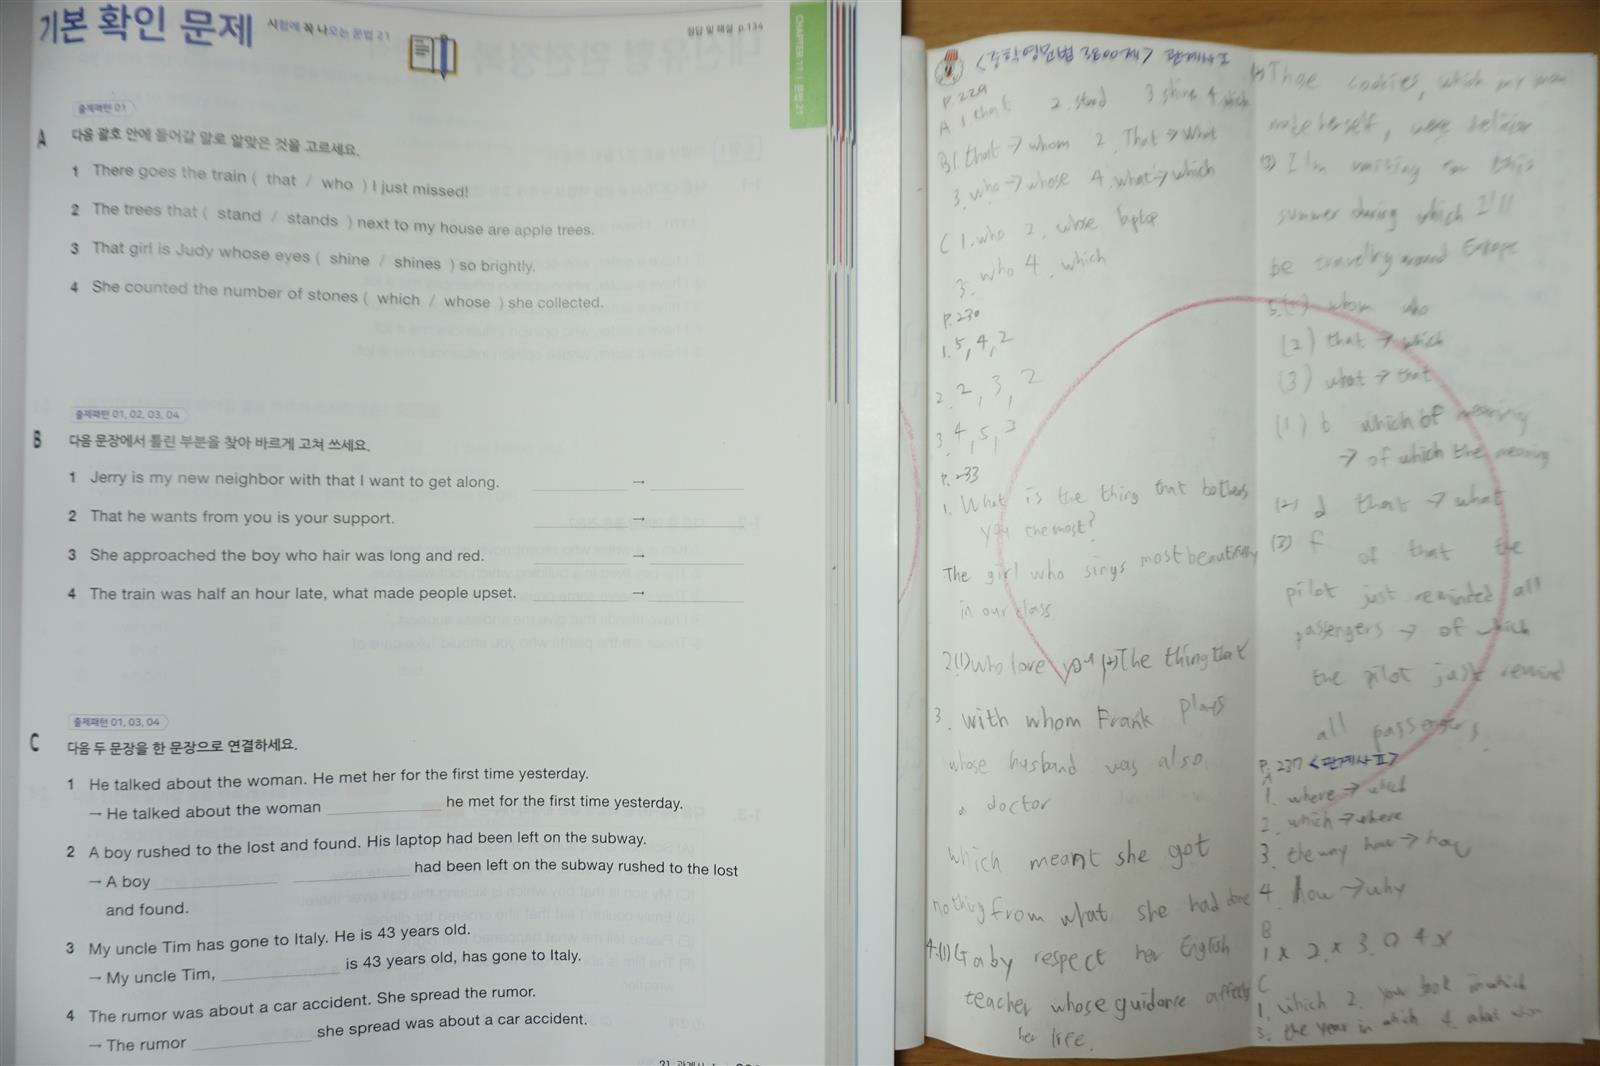 기본 확인 문제
시험에 꼭 나오는 문법 21
정답 및 해설 p.134
CHAPTER 11 | 문법 21
출제패턴 01
A 다음 괄호 안에 들어갈 말로 알맞은 것을 고르세요.
1 There goes the train ( that / who ) I just missed!
2 The trees that ( stand / stands ) next to my house are apple trees.
3 That girl is Judy whose eyes ( shine / shines ) so brightly.
4 She counted the number of stones ( which / whose ) she collected.
출제패턴 01, 02, 03, 04
B 다음 문장에서 틀린 부분을 찾아 바르게 고쳐 쓰세요.
1 Jerry is my new neighbor with that I want to get along. →
2 That he wants from you is your support. →
3 She approached the boy who hair was long and red. →
4 The train was half an hour late, what made people upset. →
출제패턴 01, 03, 04
C 다음 두 문장을 한 문장으로 연결하세요.
1 He talked about the woman. He met her for the first time yesterday.
→ He talked about the woman he met for the first time yesterday.
2 A boy rushed to the lost and found. His laptop had been left on the subway.
→ A boy had been left on the subway rushed to the lost
and found.
3 My uncle Tim has gone to Italy. He is 43 years old.
→ My uncle Tim, is 43 years old, has gone to Italy.
4 The rumor was about a car accident. She spread the rumor.
→ The rumor she spread was about a car accident.
P. 229
A 1. that 2. stand 3. shine 4. which
B 1. that → whom 2. That → What
3. who → whose 4. what → which
C 1. who 2. whose laptop
3. who 4. which
P. 230
1. 5, 4, 2
2. 2, 3, 2
3. 4, 5, 3
P. 233
1. What is the thing that bothers
you the most?
The girl who sings most beautifully
in our class
2. (1) who love you (2) The thing that
3. with whom Frank plays
whose husband was also
a doctor
which meant she got
nothing from what she had done
4. (1) Gaby respect her English
teacher whose guidance affects
her life.
(2) Those cookies, which my mom
made herself, were
(3) I'm waiting for this
summer during which I'll
be traveling around Europe
5. (1) whom who
(2) that → which
(3) what → that
(1) b which of meaning
→ of which the meaning
(2) d that → what
(3) f of that the
pilot just reminded all
passengers → of which
the pilot just remind
all passengers.
P. 237 <관계사 II>
A
1. where → which
2. which → where
3. the way how → how
4. how → why
B
1 x 2. x 3. O 4 x
C
1. which 2. your book in which
3. the year in which 4.